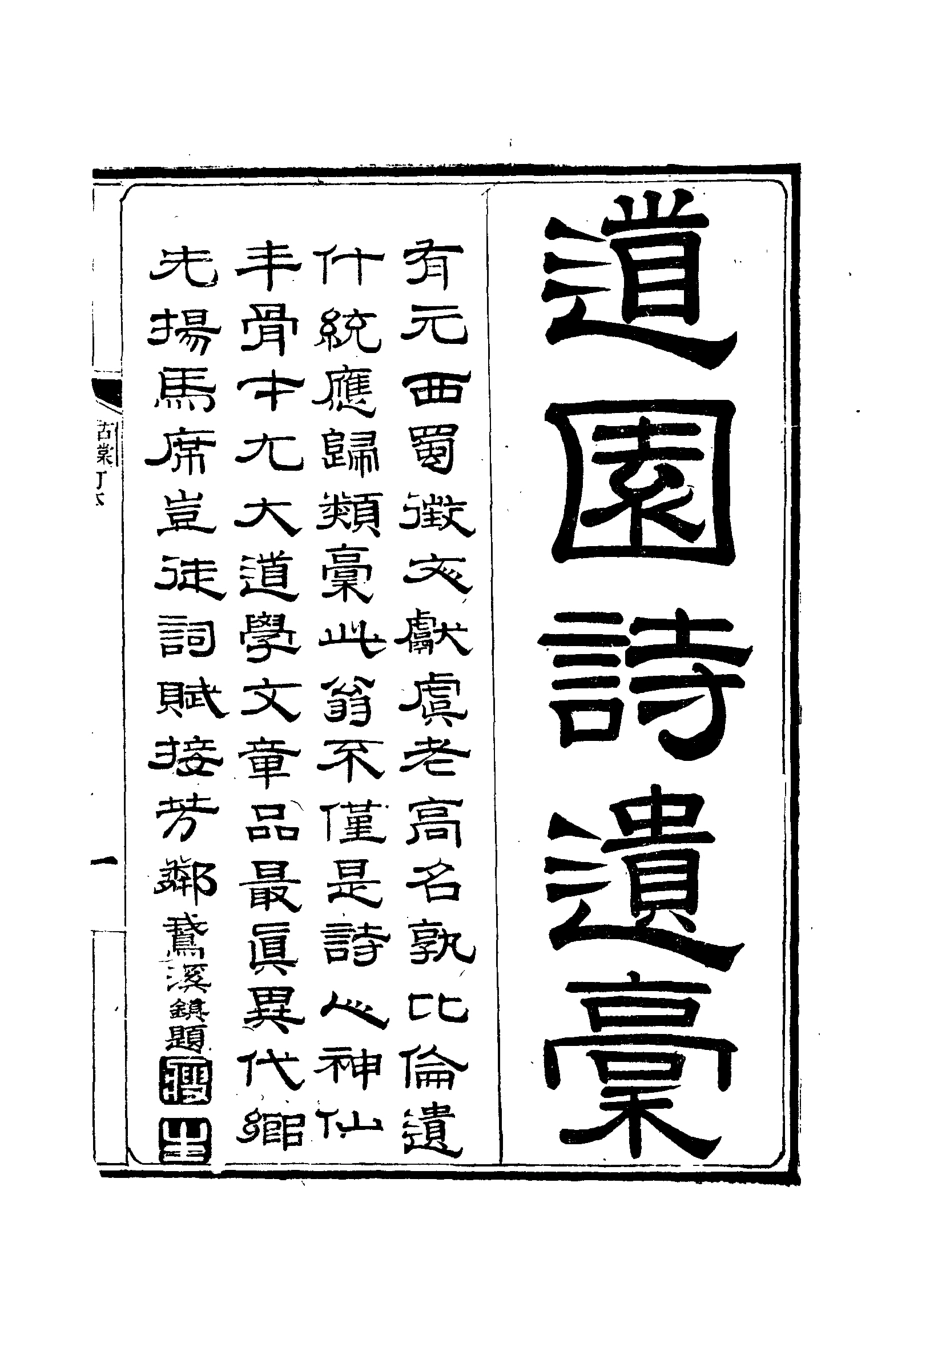 道園詩遺稾
有元西蜀徵文獻虞老高名孰比倫遺
什統應歸類稾此翁不僅是詩心神仙
丰骨才尤大道學文章品最眞異代鄉
先揚馬席豈徒詞賦接芳鄰
鵞溪鎮題
古棠
一